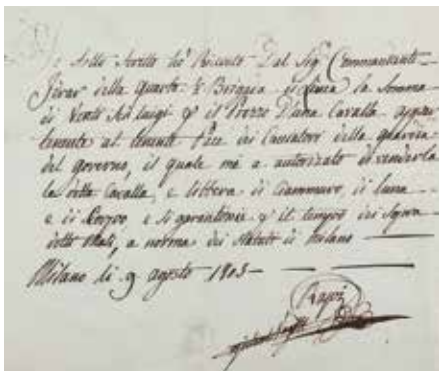 Io sotto scritto ho Ricevuto Dal Sig.r Commandante
Girar della quarta ½ Brigata di Linea la Somma
di Venti luigi p il Prezzo D'una Cavalla appar
tenente al tenente Pece dei Cacciatori della guardia
del governo, il quale mi a autorizato di venderla
la detta Cavalla, e libbera di Ciammuro, di luna
e di Bolzo e si garantonie p il tempo dei sopra
detti Mali, a norma dei Statuti di Milano
Milano li 9 agosto 1803